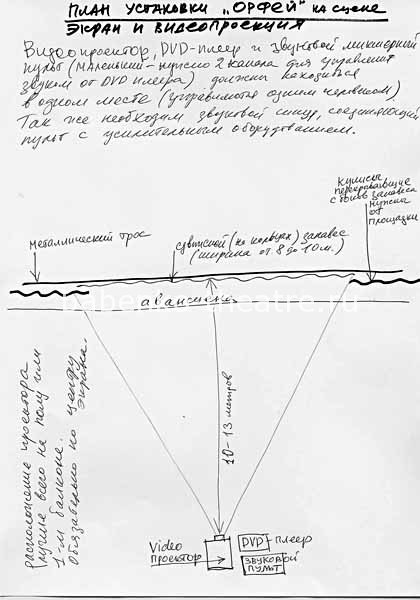 ПЛАН УСТАНОВКИ „ОРФЕЙ" на сцене
ЭКРАН И ВИДЕОПРОЕКЦИЯ
Видеопроектор, DVD-плеер и звуковой микшерный
пульт (маленький - нужно 2 канала для управления
звуком от DVD плеера) должны находиться
в одном месте (управляются одним человеком).
Так же необходим звуковой шнур, соединяющий
пульт с усилительным оборудованием.
кулисы,
перекрывающие
с боков занавес
нужны
от
площадки
металлический трос
сдвижной (на кольцах) занавес
(ширина от 8 до 10 м.)
авансцена
babenko-theatre.ru
10-13 метров
расположение проектора
лучше всего на полу или
1-м балконе.
Обязательно по центру
экрана.
Video
проектор
DVD-плеер
ЗВУКОВОЙ
ПУЛЬТ